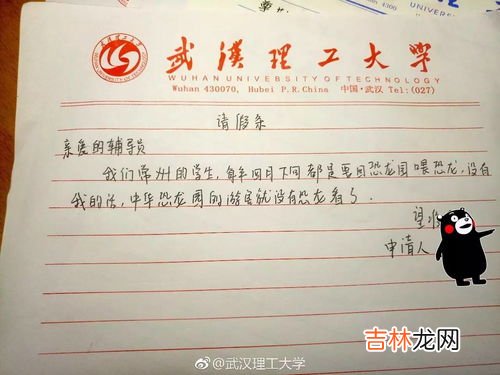 武漢理工大學
WUHAN UNIVERSITY OF TECHNOLOGY
Wuhan 430070, Hubei P.R.China 中国·武汉 Tel:(027)
请假条
亲爱的辅导员
我们常州的学生，每年四月下旬都是要回恐龙园喂恐龙，没有
我的话，中华恐龙园的游客就没有恐龙看了．
望
申请人
@武汉理工大学
吉林龙网